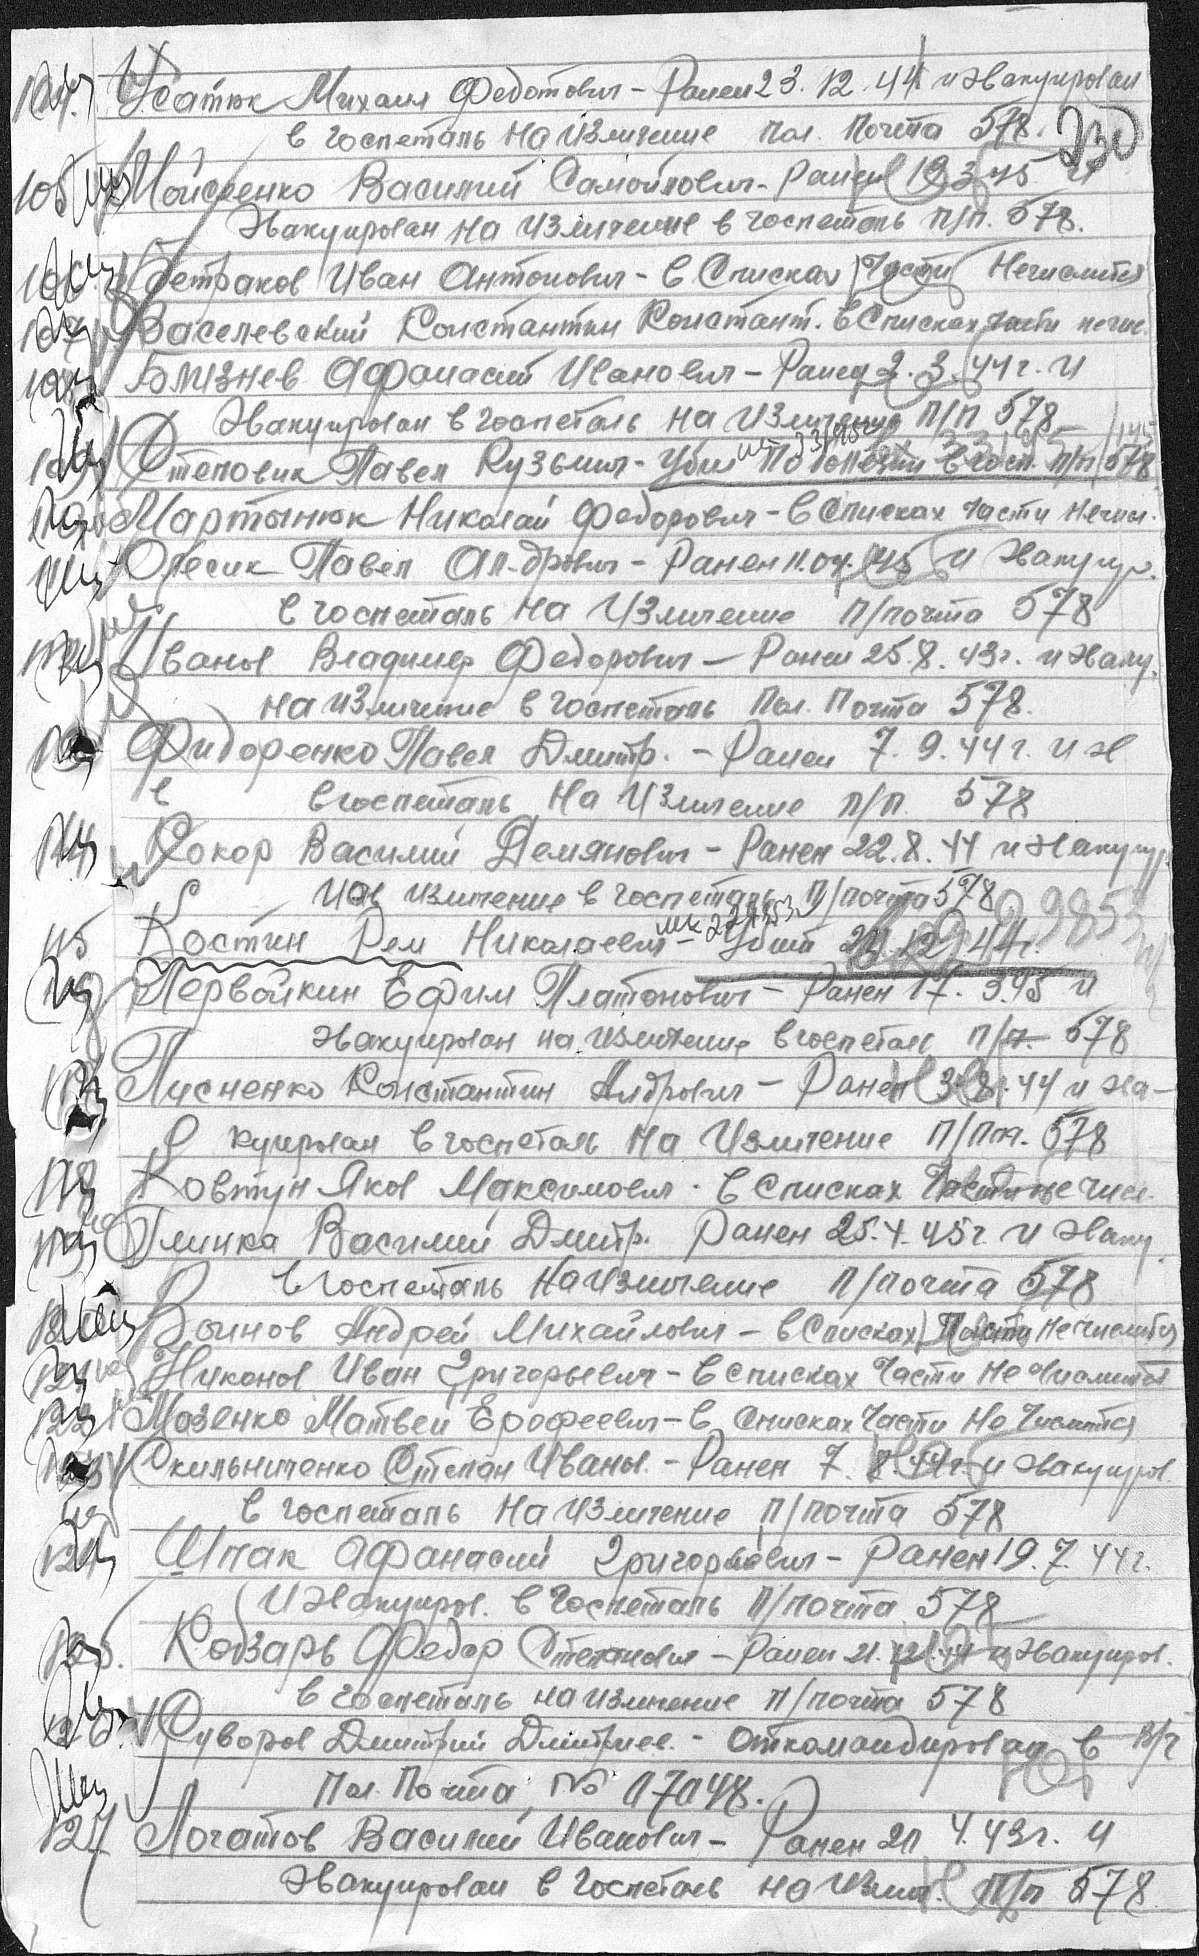 104. Усатюк Михаил Федотович - Ранен 23.12.44 и эвакуирован
в госпеталь на изличение пол. почта 578.
230
105 Мойсеенко Василий Самойлович - Ранен 19 3 45 и
Эвакуирован на изличение в госпеталь п/п. 578.
106 Петраков Иван Антонович - в Списках Части Нечислится
107 Васелевский Константин Констант. в Списках части нечис.
108 Близнев Афанасий Иванович - Ранен 2.3.44 г. и
Эвакуирован в госпеталь на изличение п/п 578
109 Степовик Павел Кузьмич - Убит п/п 578
110 Мартынюк Николай Федорович - в Списках части Нечис.
111 Олесик Павел Ал-дрович - Ранен 11.04.45 и эвакуир.
в госпеталь на изличение п/почта 578
112 Иванов Владимир Федорович - Ранен 25.8.43 г. и эваку.
на изличение в госпеталь Пол. Почта 578.
113 Фидоренко Павел Дмитр. - Ранен 7.9.44 г. и э
в госпеталь на изличение п/п. 578
114 Кокор Василий Демянович - Ранен 22.8.44 и эвакуир.
на изличение в госпеталь п/почта 578
115 Костин Рем Николаевич - Убит 12 44 г.
116 Первойкин Ефим Платонович - Ранен 17.3.45 и
эвакуирован на изличение в госпеталь п/п. 578
117 Писненко Константин Алдрович - Ранен 3.8.44 и эва-
куирован в госпеталь на изличение п/п. 578
118 Ковтун Яков Максимович. в Списках Части не числ.
119 Глинка Василий Дмитр. Ранен 25.4.45 г и эваку.
в госпеталь на изличение п/почта 578
120 Войнов Андрей Михайлович - в Списках Части Нечислится
121 Никонов Иван Григорьевич - в списках Части Не Числится
122 Мозенко Матвей Ерофеевич - в Списках Части Не Числится
123 Скильниченко Степан Иванов. - Ранен 7.8.44 г. и эвакуиров.
в госпеталь на изличение п/почта 578
124 Шпак Афанасий Григорьевич - Ранен 19.7.44 г.
и эвакуиров. в госпеталь п/почта 578
125. Кобзарь Федор Степанович - Ранен 21. и эвакуиров.
в госпеталь на изличение п/почта 578
126. Суворов Дмитрий Дмитриев. - откомандирован в в/ч
Пол. Почта, № 17048.
127 Логатов Василий Иванович - Ранен 4.43 г. и
эвакуирован в госпеталь на излич. п/п 578